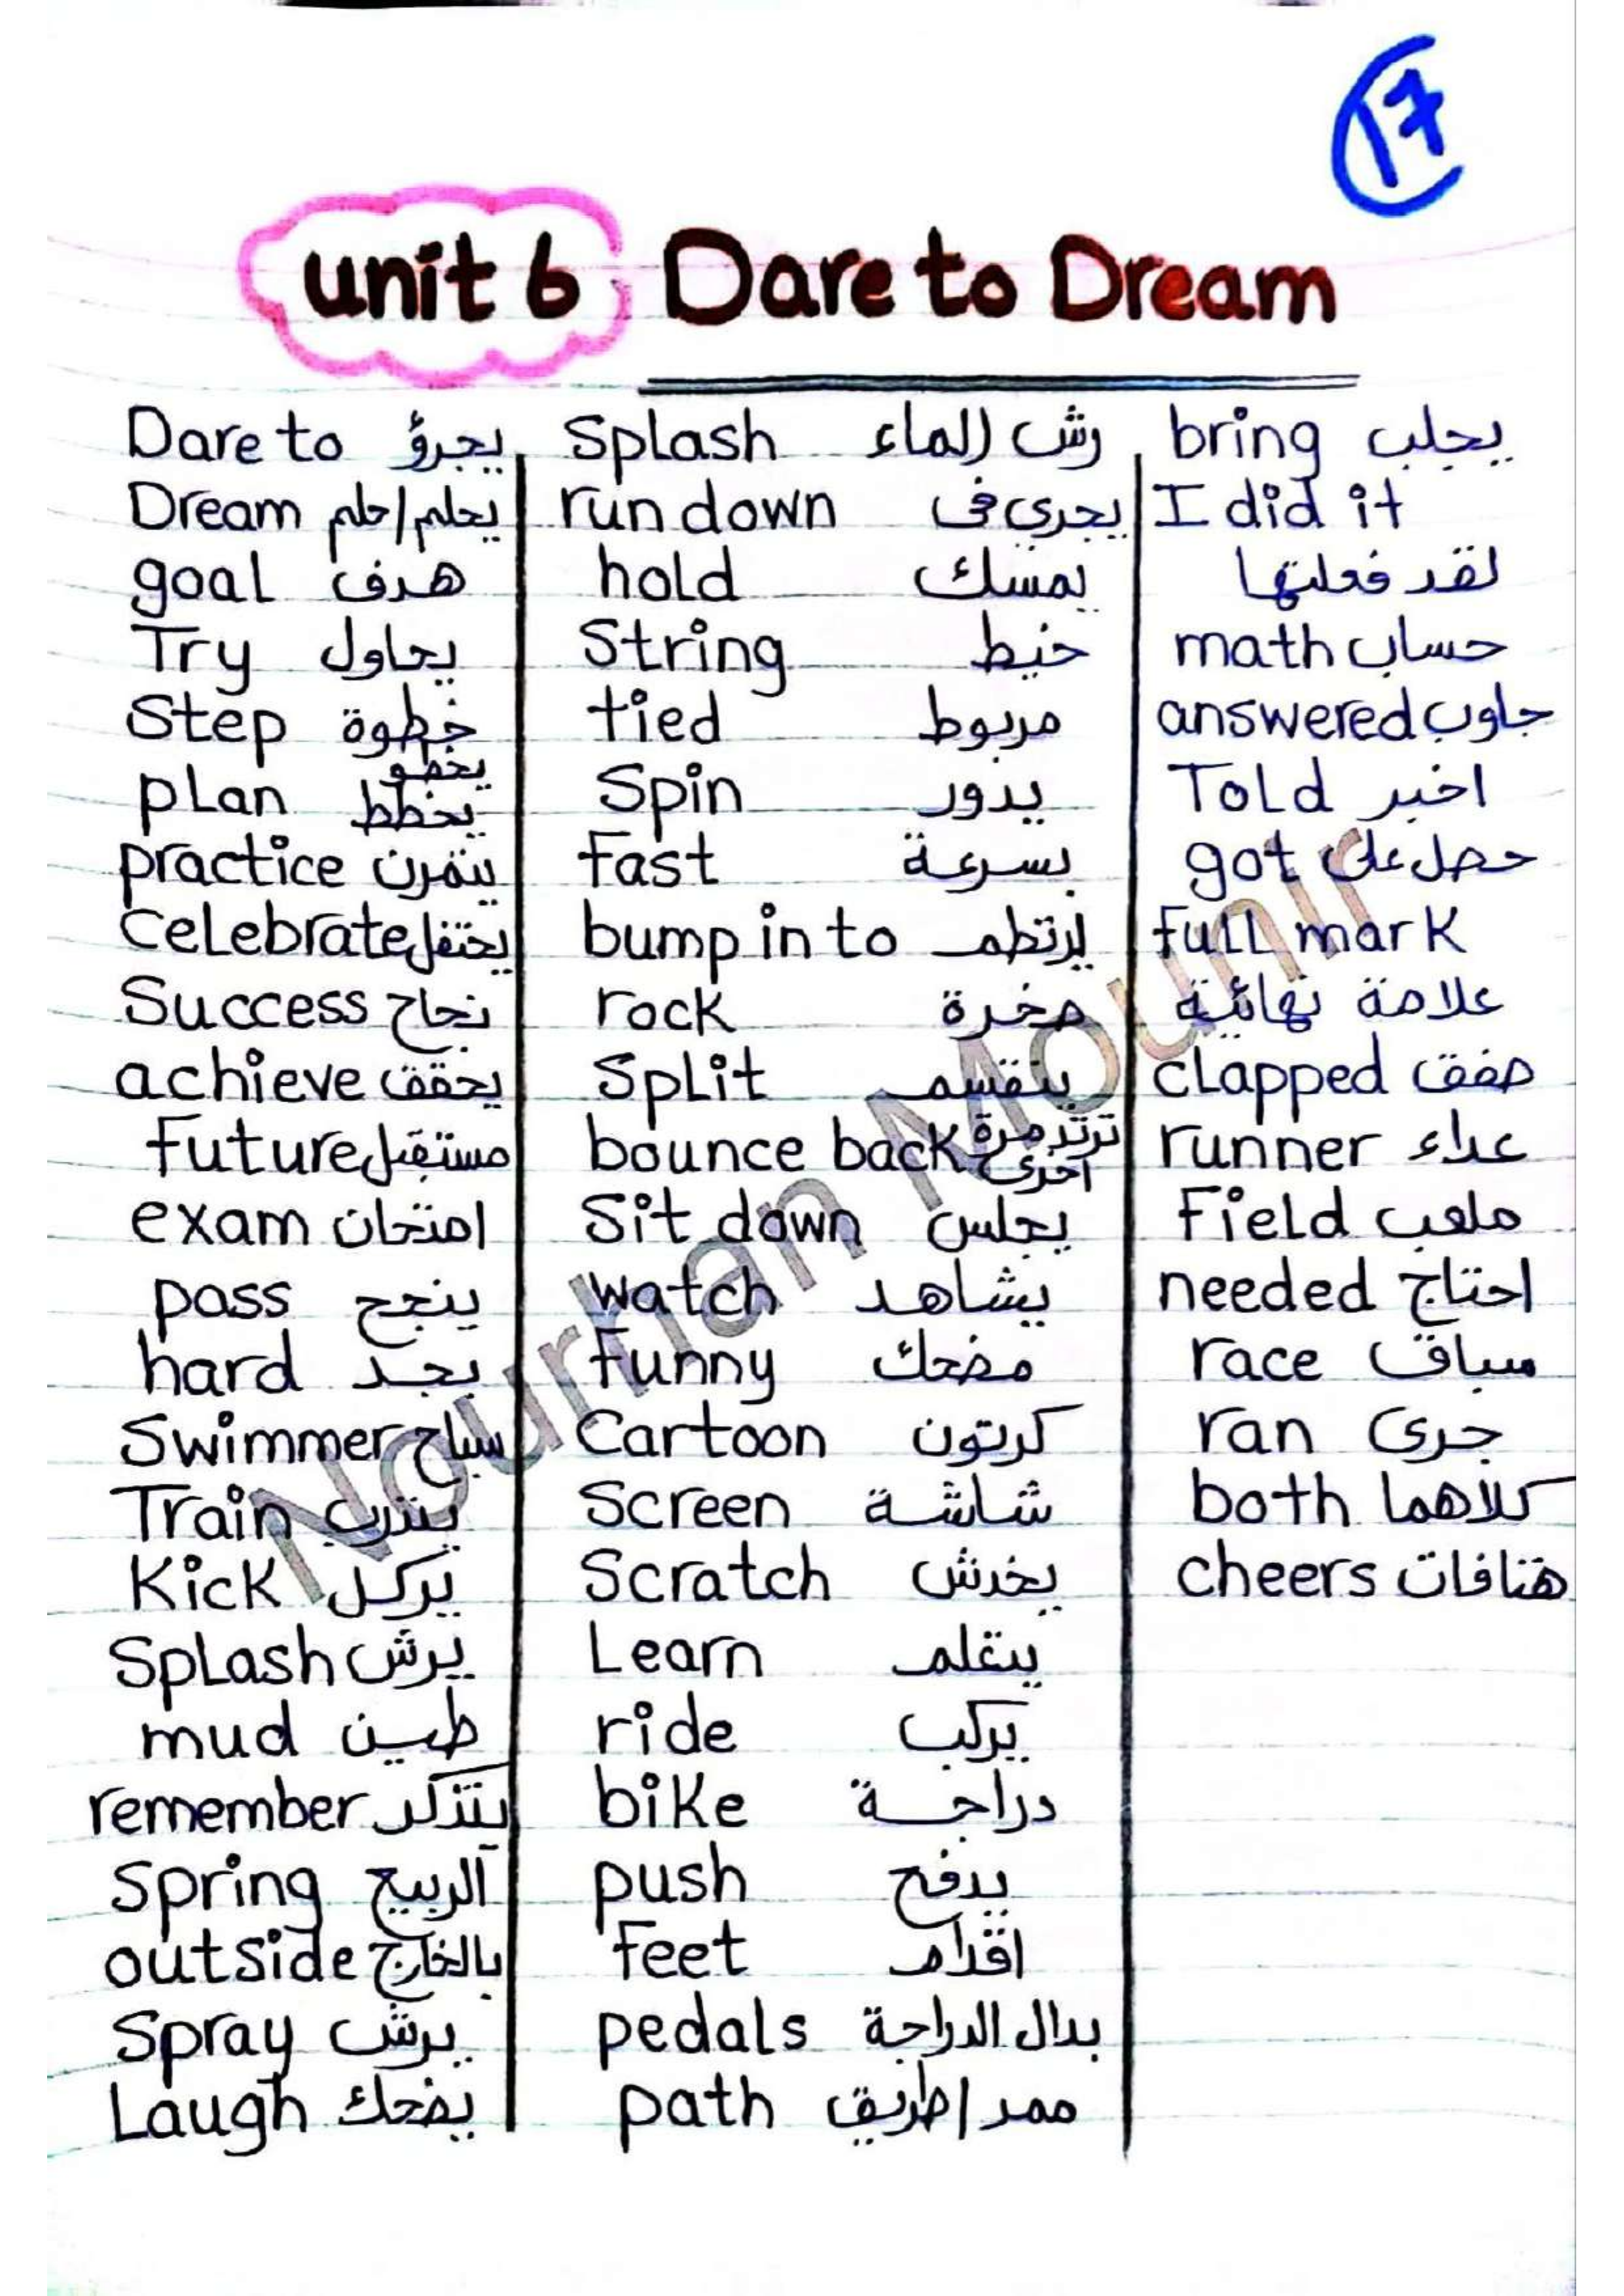 17
unit 6 Dare to Dream
Dare to يجرؤ
Dream يحلم/حلم
goal هدف
Try يحاول
Step خطوة
يخطو
plan يخطط
practice يتمرن
Celebrate يحتفل
Success نجاح
achieve يحقق
future مستقبل
exam امتحان
pass ينجح
hard بجد
Swimmer سباح
Train يتدرب
Kick يركل
Splash يرش
mud طين
remember يتذكر
Spring الربيع
outside بالخارج
Spray يرش
Laugh يضحك
Splash رش الماء
run down يجري في
hold يمسك
String خيط
tied مربوط
Spin يدور
fast بسرعة
bump in to يرتطم
rock صخرة
Split ينقسم
bounce back ترتد مرة
أخرى
Sit down يجلس
watch يشاهد
funny مضحك
Cartoon كرتون
Screen شاشة
Scratch يخدش
Learn يتعلم
ride يركب
bike دراجة
push يدفع
feet اقدام
pedals بدال الدراجة
path ممر/طريق
bring يجلب
I did it
لقد فعلتها
math حساب
answered جاوب
Told اخبر
got حصل على
full mark
علامة نهائية
clapped صفق
runner عداء
Field ملعب
needed احتاج
race سباق
ran جرى
both كلاهما
cheers هتافات
Nourhan Mounir